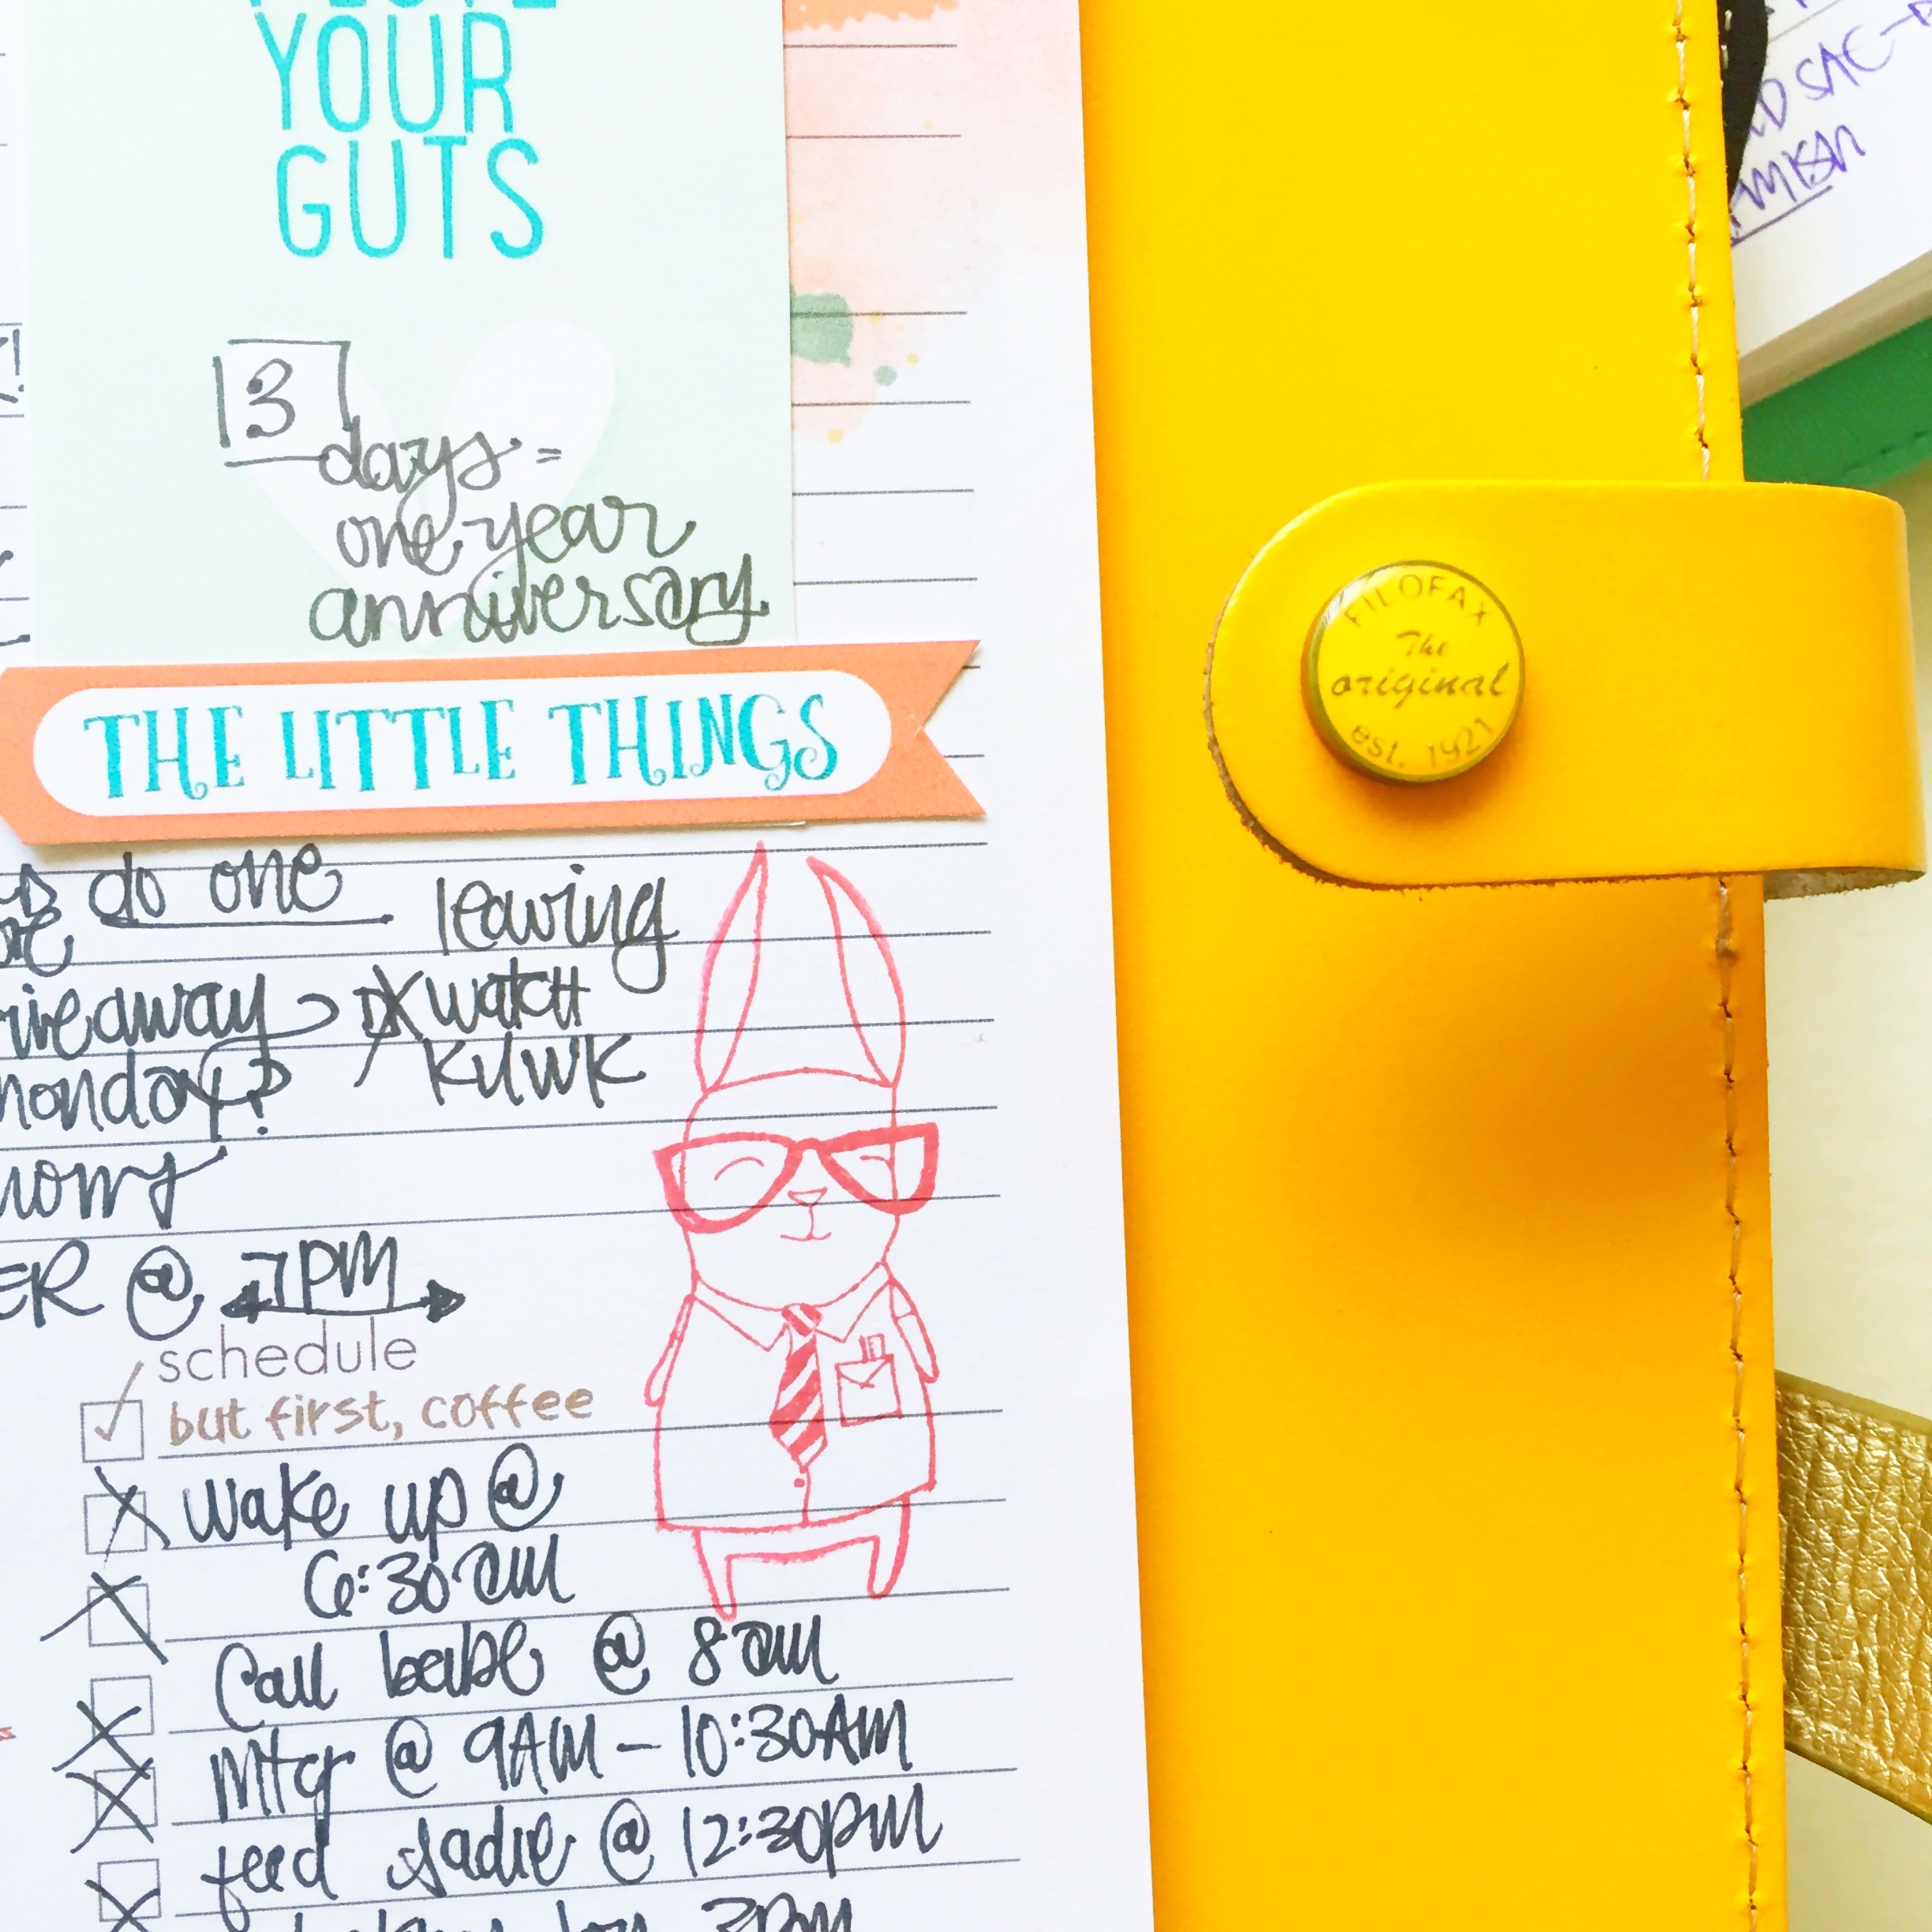 YOUR
GUTS
3
days =
one year
anniversary.
THE LITTLE THINGS
do one
leaving
watch
KUWK
monday?
ER @ 7PM
schedule
but first, coffee
wake up @
6:30 am
Call babe @ 8am
mtg @ 9AM - 10:30AM
feed sadie @ 12:30pm
3pm
FILOFAX
The
original
est. 1921